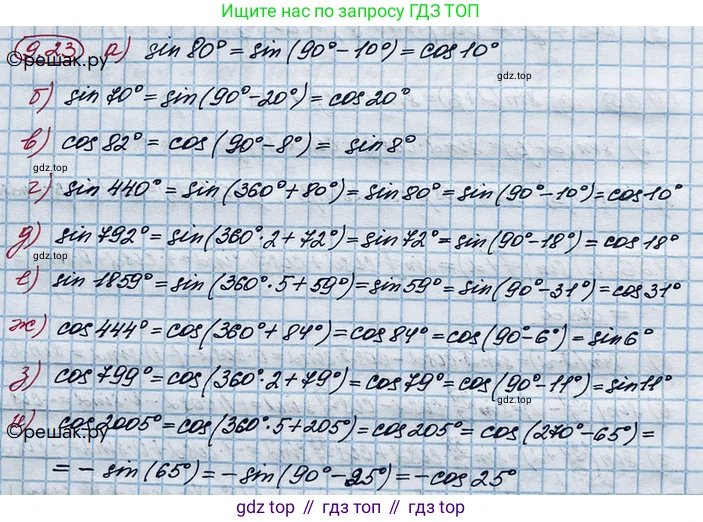 Ищите нас по запросу ГДЗ ТОП
9.23 а) sin 80° = sin(90° − 10°) = cos 10°
©решак.ру
gdz.top
б) sin 70° = sin(90° − 20°) = cos 20°
в) cos 82° = cos(90° − 8°) = sin 8°
gdz.top
г) sin 440° = sin(360° + 80°) = sin 80° = sin(90° − 10°) = cos 10°
д) sin 792° = sin(360°·2 + 72°) = sin 72° = sin(90° − 18°) = cos 18°
е) sin 1859° = sin(360°·5 + 59°) = sin 59° = sin(90° − 31°) = cos 31°
ж) cos 444° = cos(360° + 84°) = cos 84° = cos(90° − 6°) = sin 6°
з) cos 799° = cos(360°·2 + 79°) = cos 79° = cos(90° − 11°) = sin 11°
gdz.top
и) cos 2005° = cos(360°·5 + 205°) = cos 205° = cos(270° − 65°) =
©решак.ру
= − sin(65°) = − sin(90° − 25°) = − cos 25°
gdz.top
gdz top // гдз топ // gdz.top